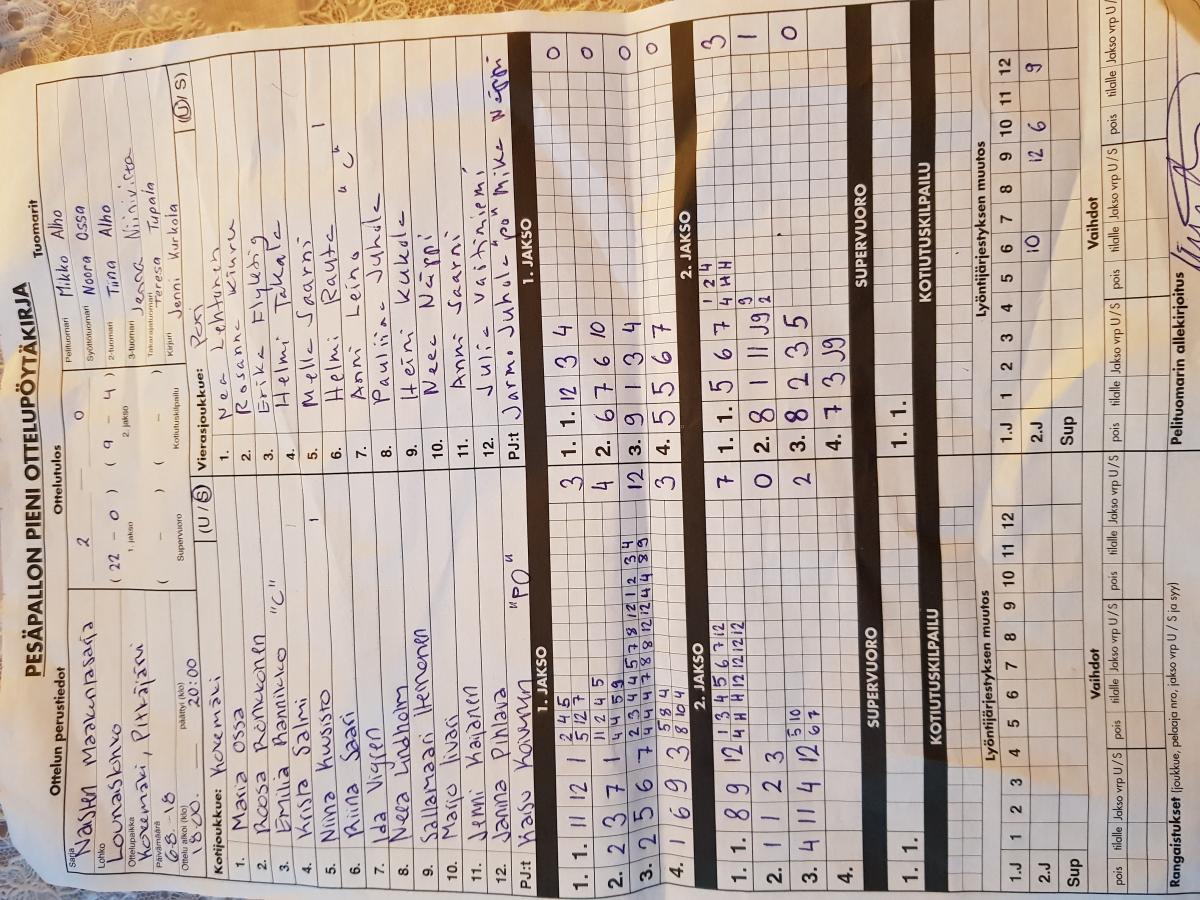 PESÄPALLON PIENI OTTELUPÖYTÄKIRJA
Ottelun perustiedot
Sarja
Naisten Maakuntasarja
Lohko
Lounaslohko
Ottelupaikka
Kokemäki, Pitkäjärvi
Päivämäärä
6.8.-18
Ottelu alkoi (klo) päättyi (klo)
18:00 20:00
Ottelutulos
2 — 0
(22 - 0) (9 - 4)
1. jakso 2. jakso
( - ) ( - )
Supervuoro Kotiutuskilpailu
Tuomarit
Pelituomari Mikko Alho
Syöttötuomari Noora Ossa
2-tuomari Tiina Alho
3-tuomari Jenna Niinivirta
Takarajatuomari Teresa Tupala
Kirjuri Jenni Kurkola
Kotijoukkue: Kokemäki (U/S)
1. Maria Ossa
2. Roosa Ronkkonen
3. Emilia Rannikko "C"
4. Krista Salmi 1
5. Niina Kuusisto
6. Riina Saari
7. Ida Vigren
8. Neea Lindholm
9. Salamaari Hernonen
10. Marjo Iivari
11. Jenni Kaijanen
12. Janina Pihlava
PJ:t Kaisu "PO"
Vierasjoukkue: Pori (U/S)
1. Nea Lehtonen
2. Rosanna Kiuru
3. Erika Flyktig
4. Helmi Takala
5. Mella Saarni 1
6. Helmi Rauta "C"
7. Anni Leino
8. Pauliina Juhola
9. Heini Kukola
10. Neea Näppi
11. Anni Saarni
12. Julia Vaitiniemi
PJ:t Jarmo Juhola "po" Mika Näppi
1. JAKSO 1. JAKSO
1. 1. 11 12 1 3
2. 2 3 7 1 4
3. 2 5 6 7 12
4. 1 6 9 3 3
1. 1. 12 3 4 0
2. 6 7 6 10 0
3. 9 1 3 4 0
4. 5 5 6 7 0
2. JAKSO 2. JAKSO
1. 1. 8 9 12 7
2. 1 1 2 3 0
3. 4 11 4 12 2
4.
1. 1. 5 6 7 3
2. 8 1 11 J9 1
3. 8 2 3 5 0
4. 7 3 J9
SUPERVUORO SUPERVUORO
1. 1.
1. 1.
KOTIUTUSKILPAILU KOTIUTUSKILPAILU
Lyöntijärjestyksen muutos
1.J 1 2 3 4 5 6 7 8 9 10 11 12
2.J
Sup
Lyöntijärjestyksen muutos
1.J 1 2 3 4 5 6 7 8 9 10 11 12
2.J 10 12 6 9
Sup
Vaihdot Vaihdot
pois tilalle Jakso vrp U / S pois tilalle Jakso vrp U / S pois tilalle Jakso vrp U / S
pois tilalle Jakso vrp U / S pois tilalle Jakso vrp U / S pois tilalle Jakso vrp U /
Rangaistukset (joukkue, pelaaja nro, jakso vrp U / S ja syy)
Pelituomarin allekirjoitus